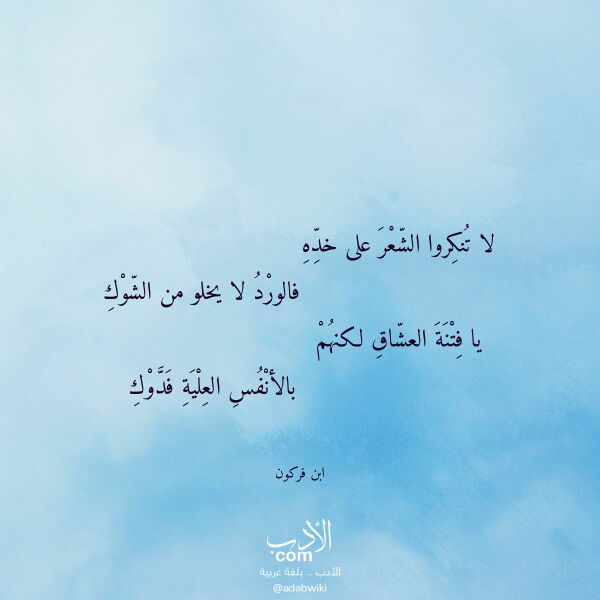 لا تُنكِروا الشّعْرَ على خدِّهِ
فالورْدُ لا يخلو من الشّوْكِ
يا فِتْنَةَ العشّاقِ لكنهُمْ
بالأنْفُسِ العِلْيَةِ فَدَّوْكِ
ابن فركون
الأدب
com
الأدب .. بلغة عربية
@adabwiki